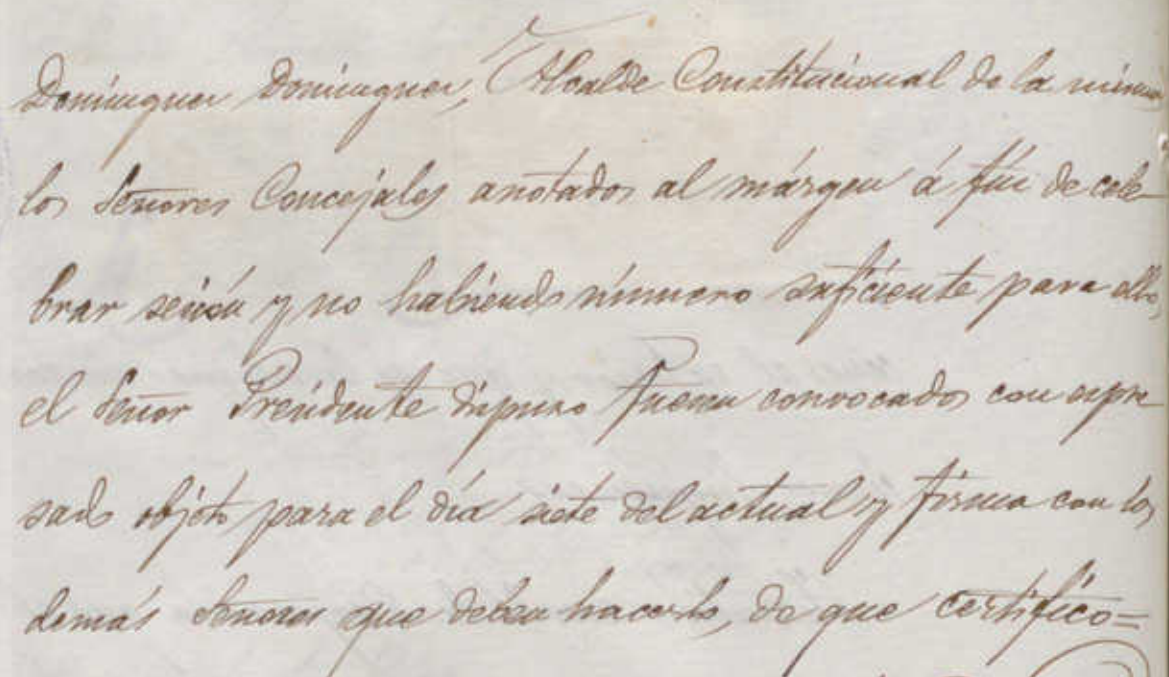 Dominguez Dominguez, Alcalde Constitucional de la misma
los Señores Concejales anotados al márgen á fin de cele-
brar sesión y no habiendo número suficiente para ello,
el Señor Presidente dispuso fueran convocados con expre-
sado objeto para el día siete del actual y firma con los
demás Señores que deben hacerlo, de que certifico=